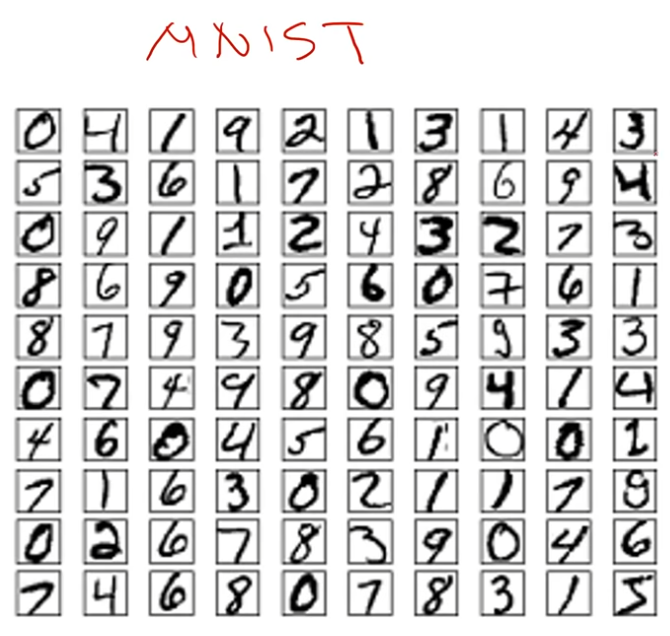 MNIST
0 4 1 9 2 1 3 1 4 3
5 3 6 1 7 2 8 6 9 4
0 9 1 1 2 4 3 2 7 3
8 6 9 0 5 6 0 7 6 1
8 7 9 3 9 8 5 9 3 3
0 7 4 9 8 0 9 4 1 4
4 6 0 4 5 6 1 0 0 1
7 1 6 3 0 2 1 1 7 9
0 2 6 7 8 3 9 0 4 6
7 4 6 8 0 7 8 3 1 5